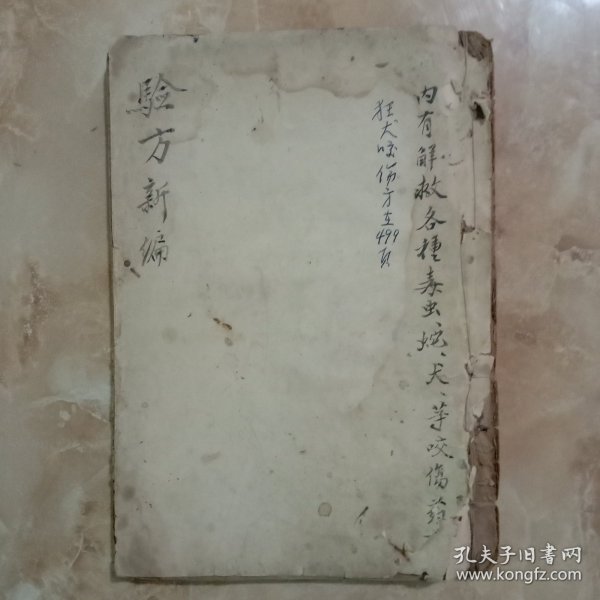 內有解救各種毒虫蛇、犬、等咬傷葯
狂犬咬伤方在499頁
驗方新編
孔夫子旧书网
www.kongfz.com